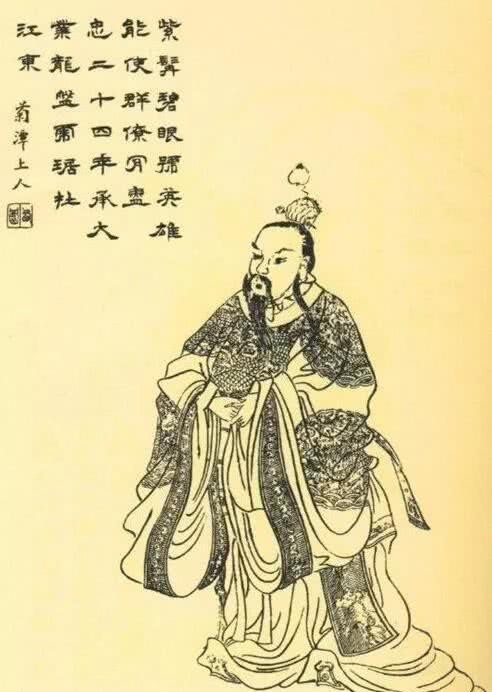 紫髯碧眼號英雄
能使群僚肯盡
忠二十四年承大
業龍盤虎踞在
江東
菊潭上人